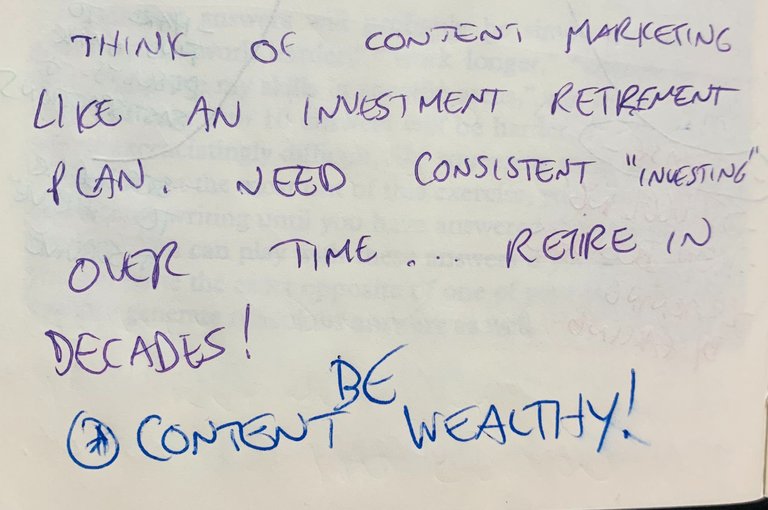 THINK OF CONTENT MARKETING
LIKE AN INVESTMENT RETIREMENT
PLAN. NEED CONSISTENT "INVESTING"
OVER TIME. RETIRE IN
DECADES!
BE
CONTENT WEALTHY!